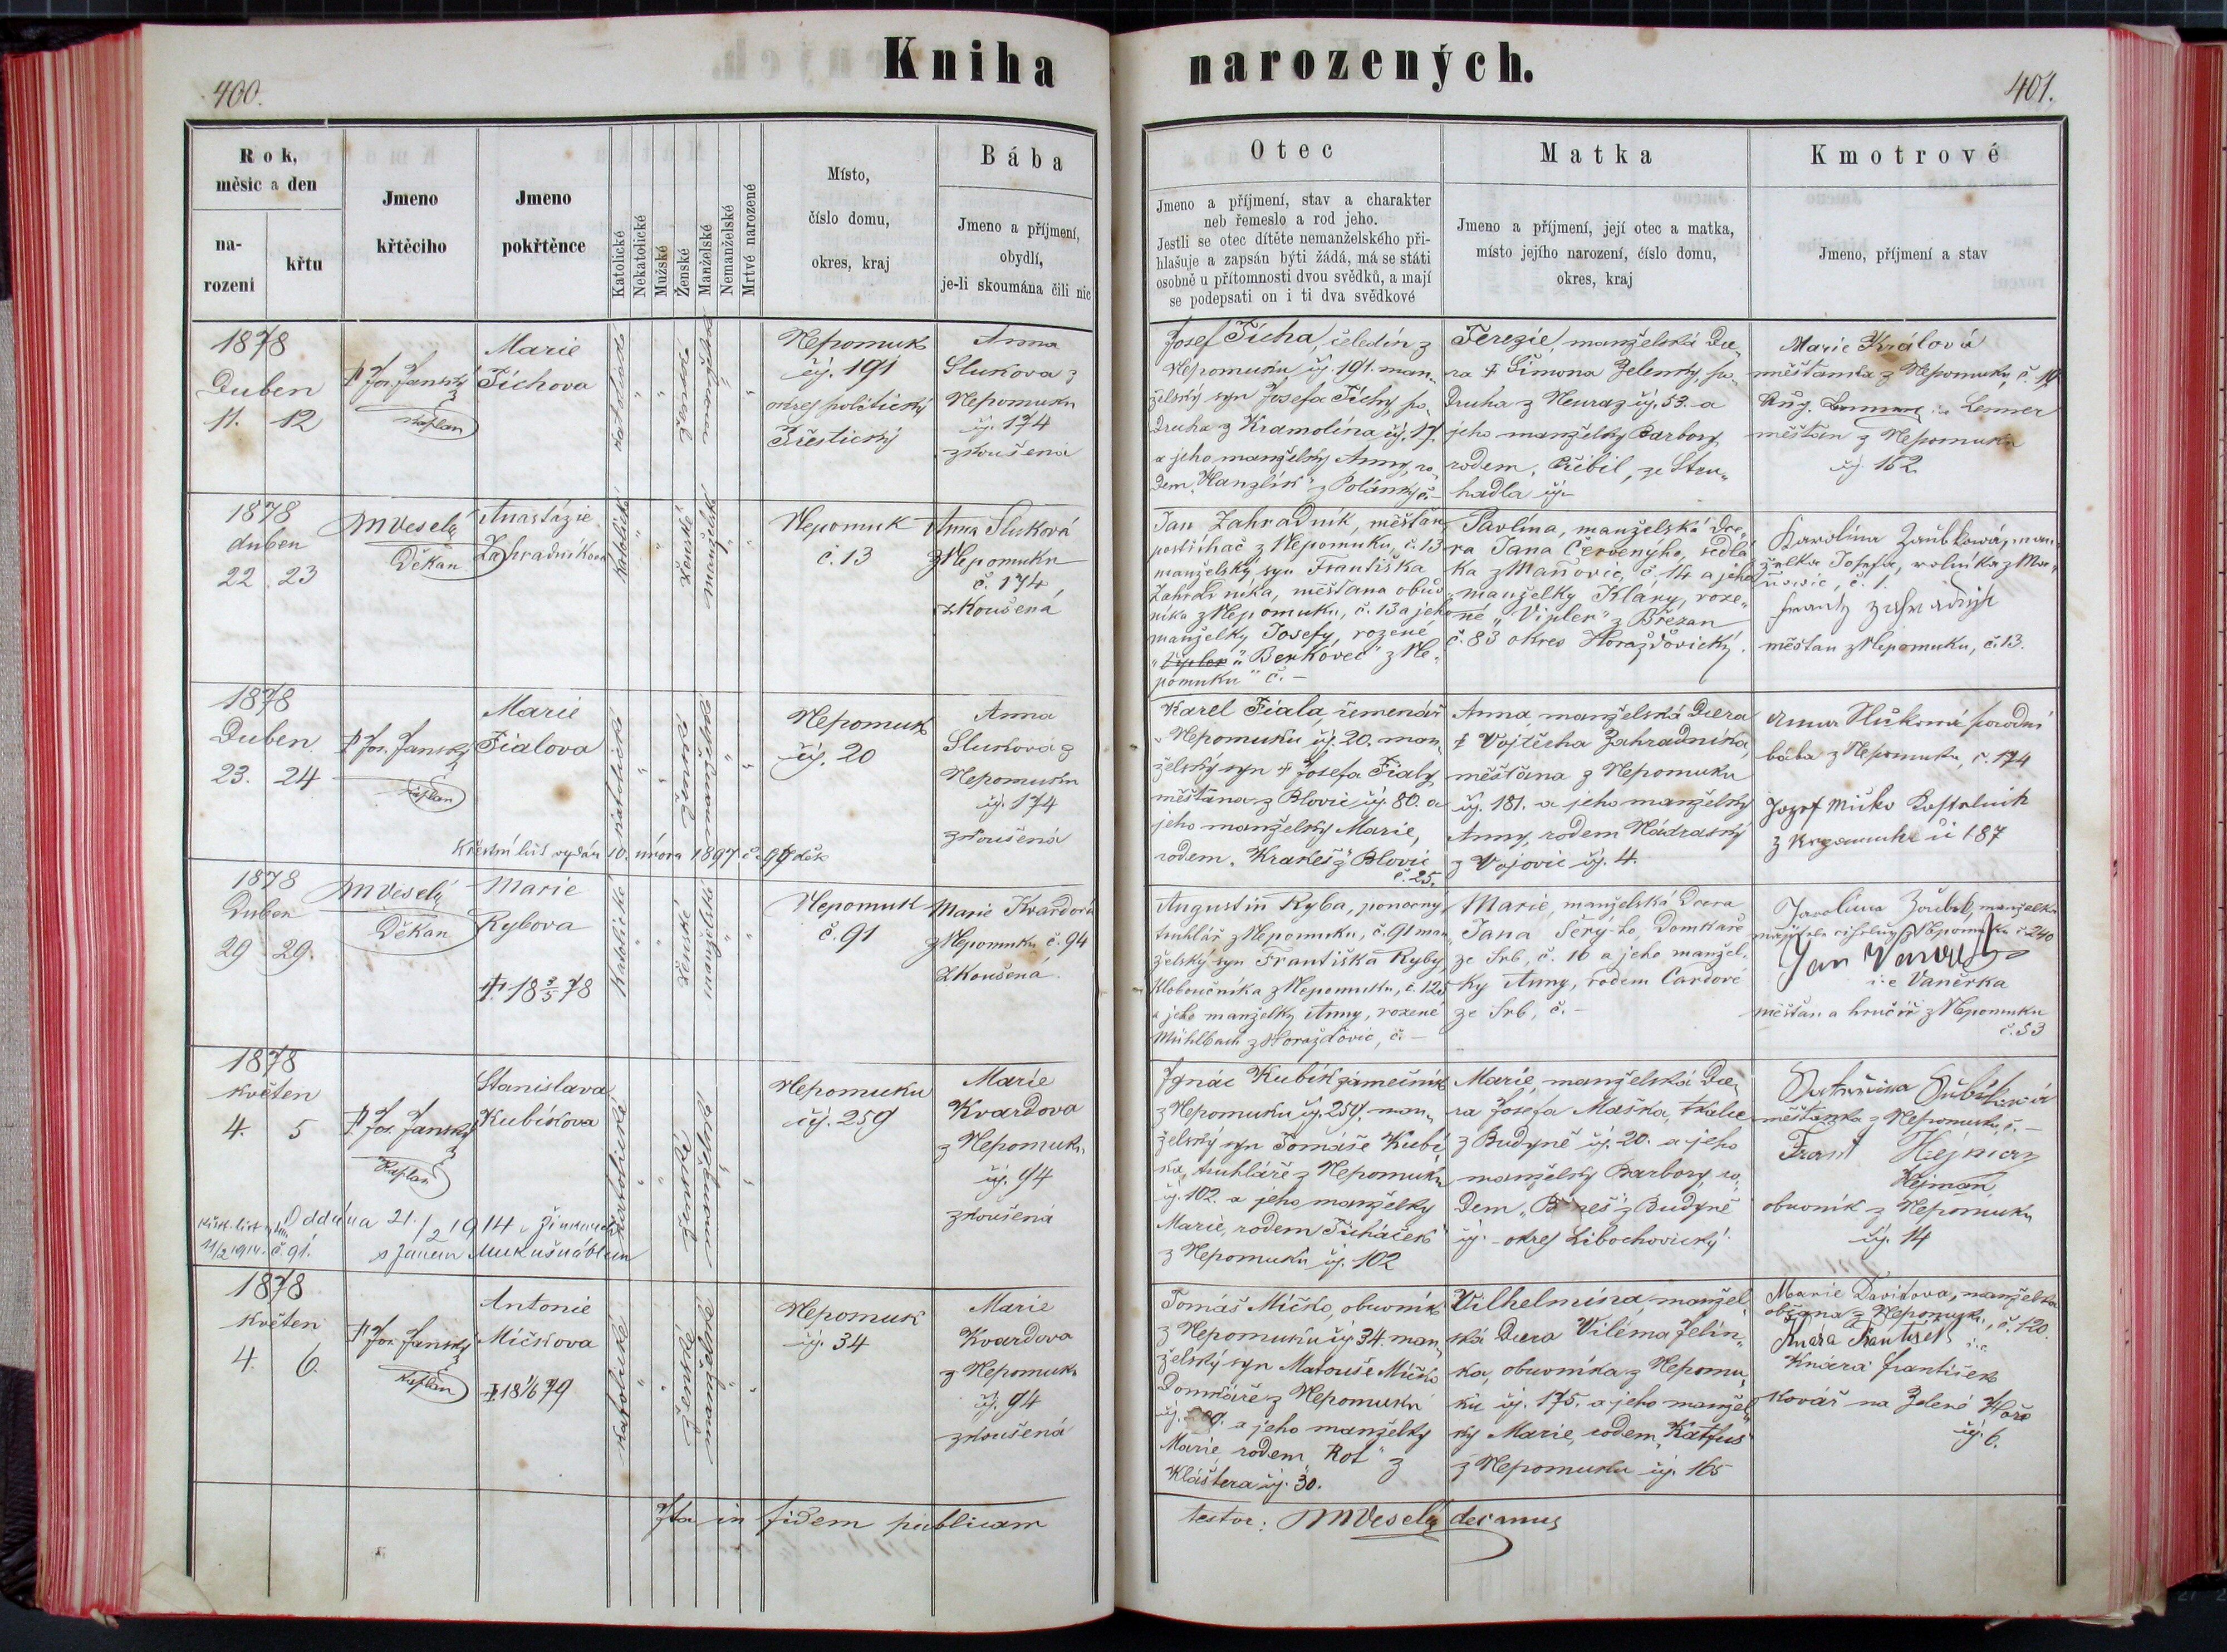 Kniha narozených.
400.
401.
Rok, měsic a den
na-
rozeni
křtu
Jmeno
křtěciho
Jmeno
pokřtěnce
Katolické
Nekatolické
Mužské
Ženské
Manželské
Nemanželské
Mrtvé narozené
Místo,
číslo domu,
okres, kraj
Bába
Jmeno a příjmení,
obydlí,
je-li skoumána čili nic
Otec
Jmeno a příjmení, stav a charakter
neb řemeslo a rod jeho.
Jestli se otec dítěte nemanželského při-
hlašuje a zapsán býti žádá, má se státi
osobně u přítomnosti dvou svědků, a mají
se podepsati on i ti dva svědkové
Matka
Jmeno a příjmení, její otec a matka,
místo jejího narození, číslo domu,
okres, kraj
Kmotrové
Jmeno, příjmení a stav
1878
Duben
11. 12
P. Jos. Janský
kaplan
Marie
Tíchova
katolické
ženské
manželské
Nepomuk
čj. 191
okres politický
Přestický
Anna
Slukova z
Nepomuku
čj. 174
zkoušená
Josef Tícha, čeledín z
Nepomuku čj. 191. man-
želský syn Josefa Tíchy, po-
druha z Kramolína čj. 17.
a jeho manželky Anny, ro-
dem „Hanzlík" z Polánky č. –
Terezie, manželská dce-
ra † Šimona Zelenky, po-
druha z Neuraz čj. 53. a
jeho manželky Barbory,
rodem, Přibil, ze Stru-
hadla čj. –
Marie Králová
měšťanka z Nepomuku, č.
Aug. i.e. Lenner
měšťan z Nepomuku
čj. 162.
1878
duben
22. 23
M Veselý
Děkan
Anastázie
Zahradníkova
Katolické
ženské
manželské
Nepomuk
č. 13
Anna Sluková
z Nepomuku
č. 174
zkoušená
Jan Zahradník, měšťan
postřihač z Nepomuku, č. 13
manželský syn Františka
Zahradníka, měšťana obuv-
níka z Nepomuku, č. 13 a jeho
manželky Josefy, rozené
„Berkovec" z Ne-
pomuku" č. –
Pavlína, manželská dce-
ra Jana Červenýho, sedlá-
ka z Maňovic, č. 14 a jeho
manželky Klary, roze-
né „Vipler" z Břežan
č. 83 okres Horažďovický.
Karolína Zaubkowá, man-
želka Josefa, rolníka z Ma-
ňowic, č. 1.
měšťan z Nepomuku, č. 13.
1878
Duben.
23. 24
P. Jos. Janský
kaplan
Marie
Fialova
katolické
ženské
manželské
Nepomuk
čj. 20
Anna
Slukova z
Nepomuku
čj. 174
zkoušená
Křestní list vydán 10. února 1897 č.
Karel Fiala, řemenář
z Nepomuku čj. 20. man-
želský syn † Josefa Fialy,
měšťana z Blovic čj. 80. a
jeho manželky Marie,
rodem, Krakeš z Blovic
č. 25.
Anna, manželská dcera
† Vojtěcha Zahradníka,
měšťana z Nepomuku
čj. 181. a jeho manželky
Anny, rodem Nádraský
z Vojovic čj. 4.
Anna Sluková porodní
bába z Nepomuku, č. 174
Jozef Mičko
z Nepomuku č 187
1878
Duben
29 29.
M Veselý
Děkan
Marie
Rybova
†. 18 3/5 78
Katolické
ženské
manželské
Nepomuk
č. 91
Marie Kvardová
z Nepomuku č. 94
Zkoušená.
Augustin Ryba, ponorný
truhlář z Nepomuku, č. 91 man-
želský syn Františka Ryby,
kloboučníka z Nepomuku, č. 125
a jeho manželky Anny, rozené
Mühlbach z Horažďovic, č. –
Marie, manželská dcera
Jana Šerý-ho, Domkaře
ze Srb, č. 16 a jeho manžel-
ky Anny, rodem Cardové
ze Srb, č. –
Karolina Zoubek, manželka
z Nepomuku č 240
Jan
i.e Vaněrka
měšťan a hrnčíř z Nepomuku
č. 53
1878
květen
4. 5
P. Jos. Janský
Kaplan
Stanislava
Kubíkova
katolické
ženské
manželské
Nepomuku
čj. 259
Marie
Kvardova
z Nepomuku
čj. 94
zkoušená
křest. list vyd.
11/2 1914. č. 91.
Oddána 21./2 1914 v
s Janem
Ignác Kubík zámečník
z Nepomuku čj. 259. man-
želský syn Tomáše Kubí-
ka, truhláře z Nepomuku
čj. 102. a jeho manželky
Marie, rodem Ticháček
z Nepomuku čj. 102
Marie, manželská dce-
ra Josefa Maška, tkalce
z Budyně čj. 20. a jeho
manželky Barbory, ro-
dem, „Bureš" z Budyně
čj. – okres Libochovický
Kateřina Kubíková
měšťanka z Nepomuku, č. –
Frant Hejman
Hejman
obuvník z Nepomuku
čj. 14
1878
květen
4. 6.
P. Jos. Janský
Kaplan
Antonie
Míčkova
† 18 1/6 79
katolické
ženské
manželské
Nepomuk
čj. 34
Marie
Kvardova
z Nepomuku
čj. 94
zkoušená
Tomáš Míčko, obuvník
z Nepomuku čj 34. man-
želský syn Matouše Míčko
Domkáře z Nepomuku
čj. a jeho manželky
Marie, rodem „Rot" z
Kláštera čj. 30.
Vilhelmina, manžel-
ská dcera Viléma Jelín-
ka, obuvníka z Nepomu-
ku čj. 175. a jeho manžel-
ky Marie, rodem,
z Nepomuku čj. 165
Marie Davidova, manželka
občana z Nepomuku, č. 120.
Knára František
i.e.
Knára František
kovář na Zelené Hoře
čj. 6.
Ita in fidem publicam
testor: M Veselý decanus